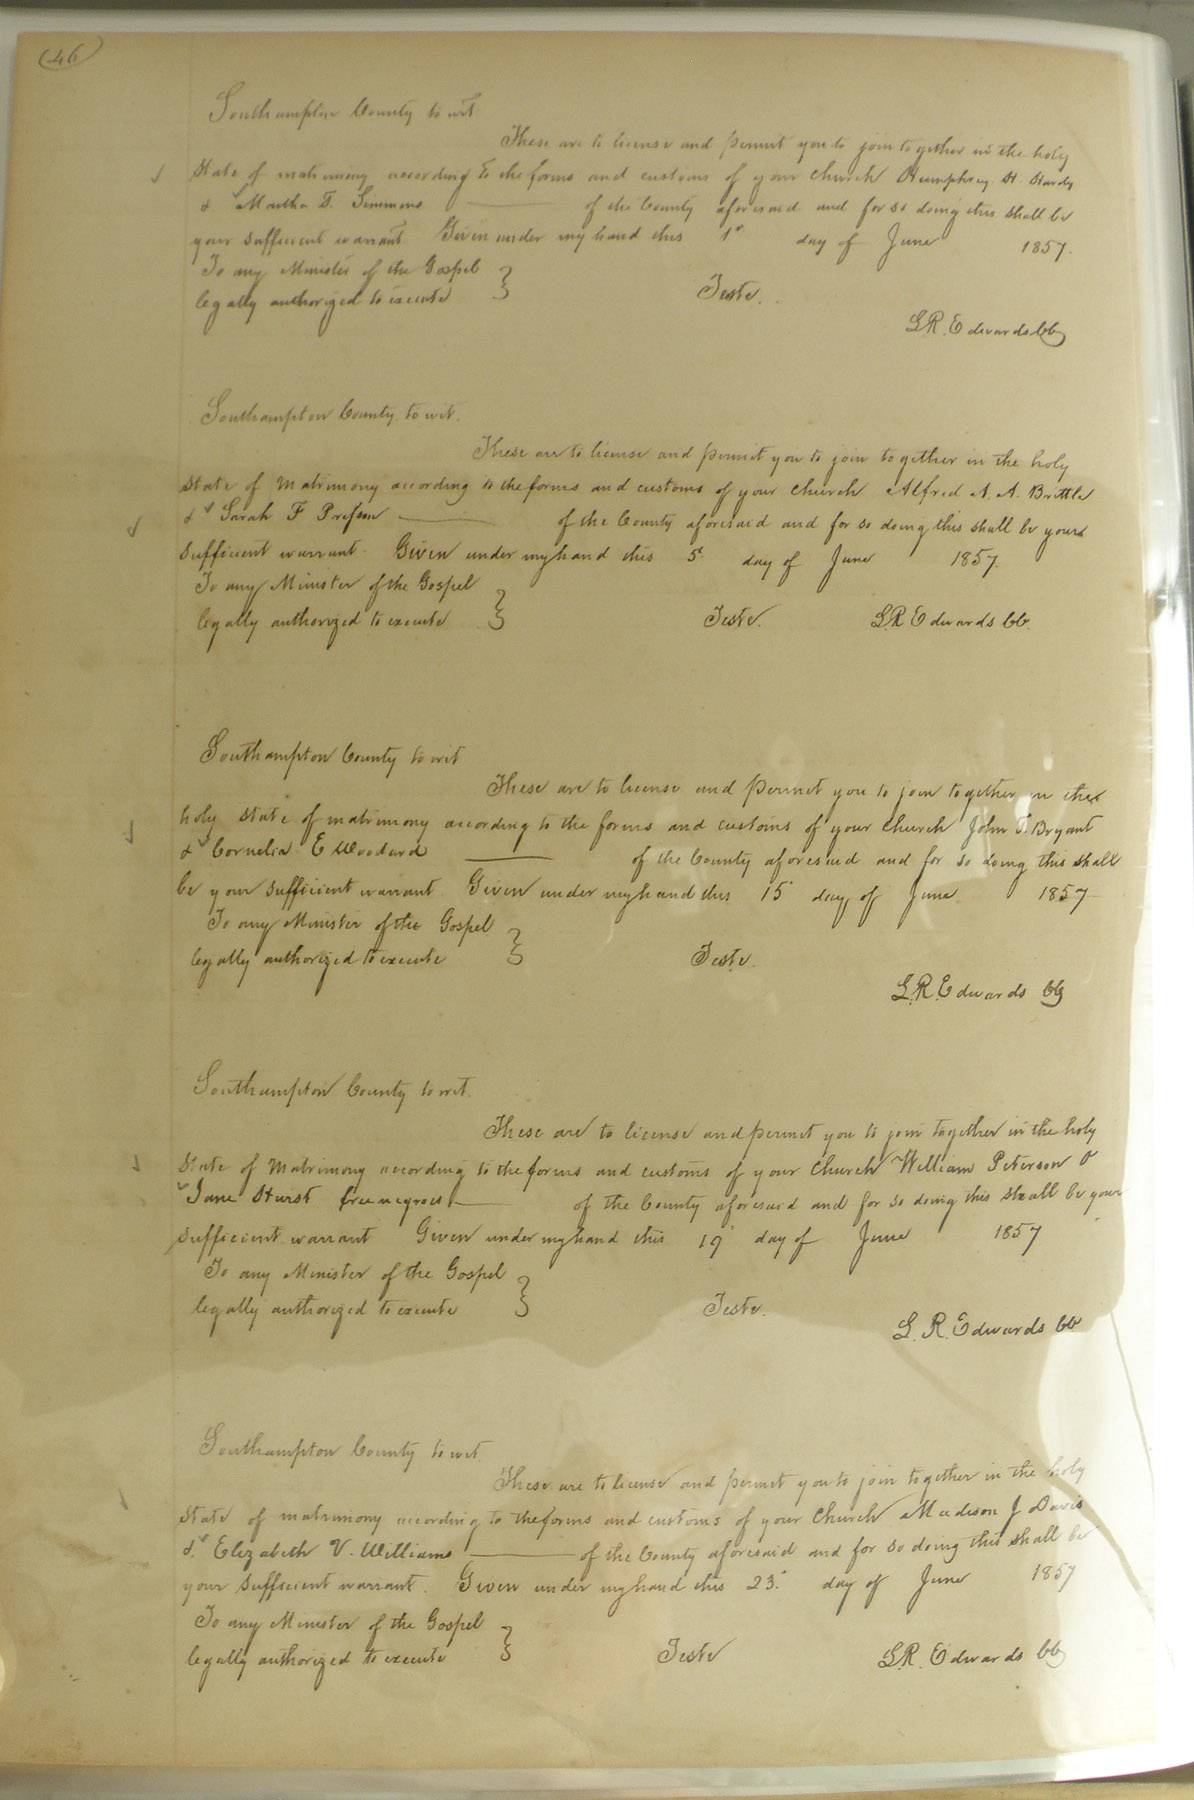 (46)
Southampton County to wit
These are to license and permit you to join together in the holy
State of matrimony according to the forms and customs of your church Humphrey H. Hardy
& Martha T. Simmons of the County aforesaid and for so doing this shall be
your sufficient warrant Given under my hand this 1st day of June 1857.
To any Minister of the Gospel }
legally authorized to execute Teste.
L R. Edwards CC
Southampton County to wit.
These are to license and permit you to join together in the holy
State of Matrimony according to the forms and customs of your church Alfred N. A. Brittle
& Sarah F of the County aforesaid and for so doing this shall be your
sufficient warrant. Given under my hand this 5 day of June 1857.
To any Minister of the Gospel }
legally authorized to execute Teste. L R Edwards CC.
Southampton County to wit
These are to license and permit you to join together in the
holy State of matrimony according to the forms and customs of your church John T. Bryant
& Cornelia E Woodard of the County aforesaid and for so doing this shall
be your sufficient warrant. Given under my hand this 15 day of June 1857
To any Minister of the Gospel }
legally authorized to execute Teste.
L. R. Edwards CC
Southampton County to wit.
These are to license and permit you to join together in the holy
State of Matrimony according to the forms and customs of your church William Peterson &
Jane Hurst free negroes of the County aforesaid and for so doing this shall be your
sufficient warrant Given under my hand this 19 day of June 1857
To any Minister of the Gospel }
legally authorized to execute Teste.
L. R. Edwards CC
Southampton County to wit
These are to license and permit you to join together in the holy
State of matrimony according to the forms and customs of your Church Madison J Davis
& Elizabeth V. Williams of the County aforesaid and for so doing this shall be
your sufficient warrant. Given under my hand this 23. day of June 1857
To any Minister of the Gospel }
legally authorized to execute Teste L R. Edwards CC